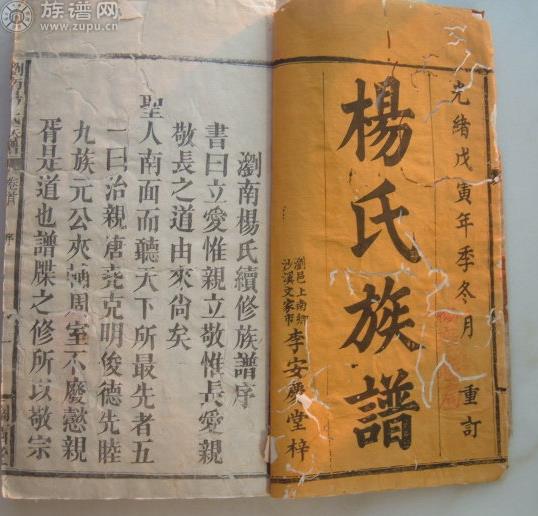 族谱网
www.zupu.cn
光緒戊寅年季冬月 重訂
楊氏族譜
瀏邑上南鄉
沙溪文家市
李安慶堂梓
瀏南楊氏續修族譜序
書曰立愛惟親立敬惟長愛親
敬長之道由來尚矣
聖人南面而聽天下所最先者五
一曰治親唐堯克明俊德先睦
九族元公夾輔周室不廢懿親
胥是道也譜牒之修所以敬宗
卷首 序